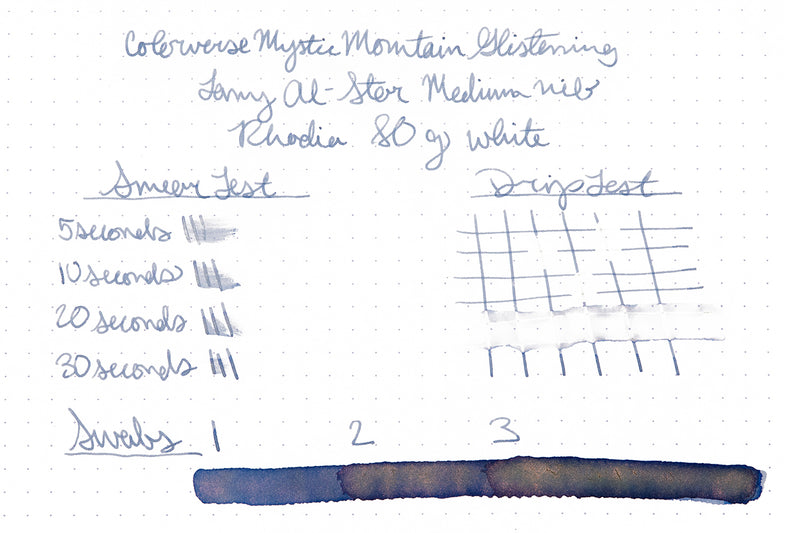 Colorverse Mystic Mountain Glistening
Lamy Al-Star Medium nib
Rhodia 80 g white
Smear Test
Drip Test
5 seconds
10 seconds
20 seconds
30 seconds
Swabs 1 2 3